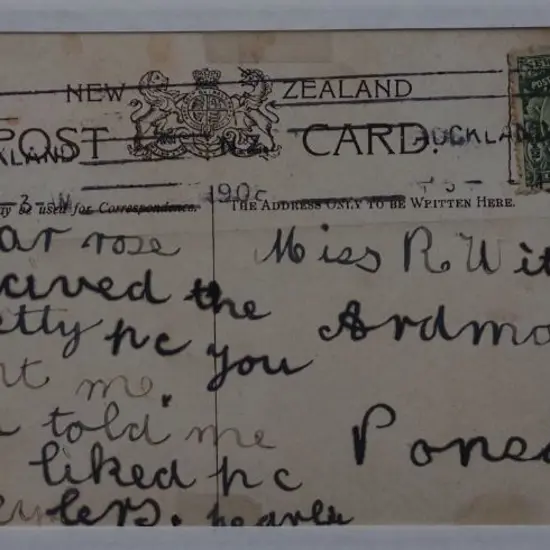 NEW ZEALAND
POST CARD.
KLAND N.Z. AUCKLAN
190
ay be used for Correspondence.
THE ADDRESS ONLY TO BE WRITTEN HERE.
ar rose
the
etty pc you
nt me.
told me
liked pc
lers. pearla
Miss R. Wit
Ardmo
Pons